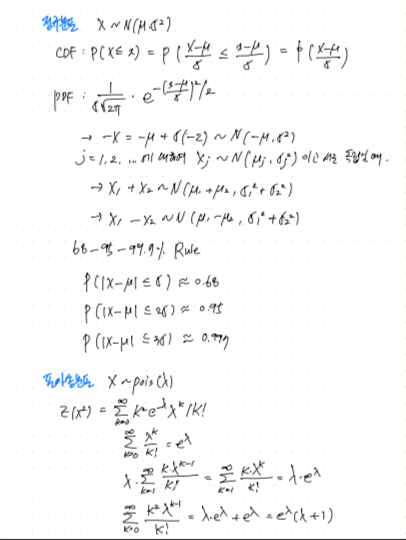 정규분포 X ~ N(μ, σ²)
CDF : P(X ≤ x) = P( (X-μ)/σ ≤ (x-μ)/σ ) = Φ( (x-μ)/σ )
PDF : 1/(σ√2π) · e^-((x-μ)/σ)²/2
→ -X = -μ + σ(-Z) ~ N(-μ, σ²)
j = 1, 2, ... 에 대하여 Xj ~ N(μj, σj²) 이고 서로 독립일 때.
→ X₁ + X₂ ~ N(μ₁ + μ₂, σ₁² + σ₂²)
→ X₁ - X₂ ~ N(μ₁ - μ₂, σ₁² + σ₂²)
68 - 95 - 99.7% Rule
P(|X-μ| ≤ σ) ≈ 0.68
P(|X-μ| ≤ 2σ) ≈ 0.95
P(|X-μ| ≤ 3σ) ≈ 0.997
포아송분포 X ~ pois(λ)
E(X²) = Σ_{k=0}^∞ k² e^-λ λ^k / k!
Σ_{k=0}^∞ λ^k/k! = e^λ
λ · Σ_{k=1}^∞ k·λ^{k-1}/k! = Σ_{k=1}^∞ k·λ^k/k! = λ · e^λ
Σ_{k=0}^∞ k² λ^{k-1}/k! = λ·e^λ + e^λ = e^λ(λ+1)